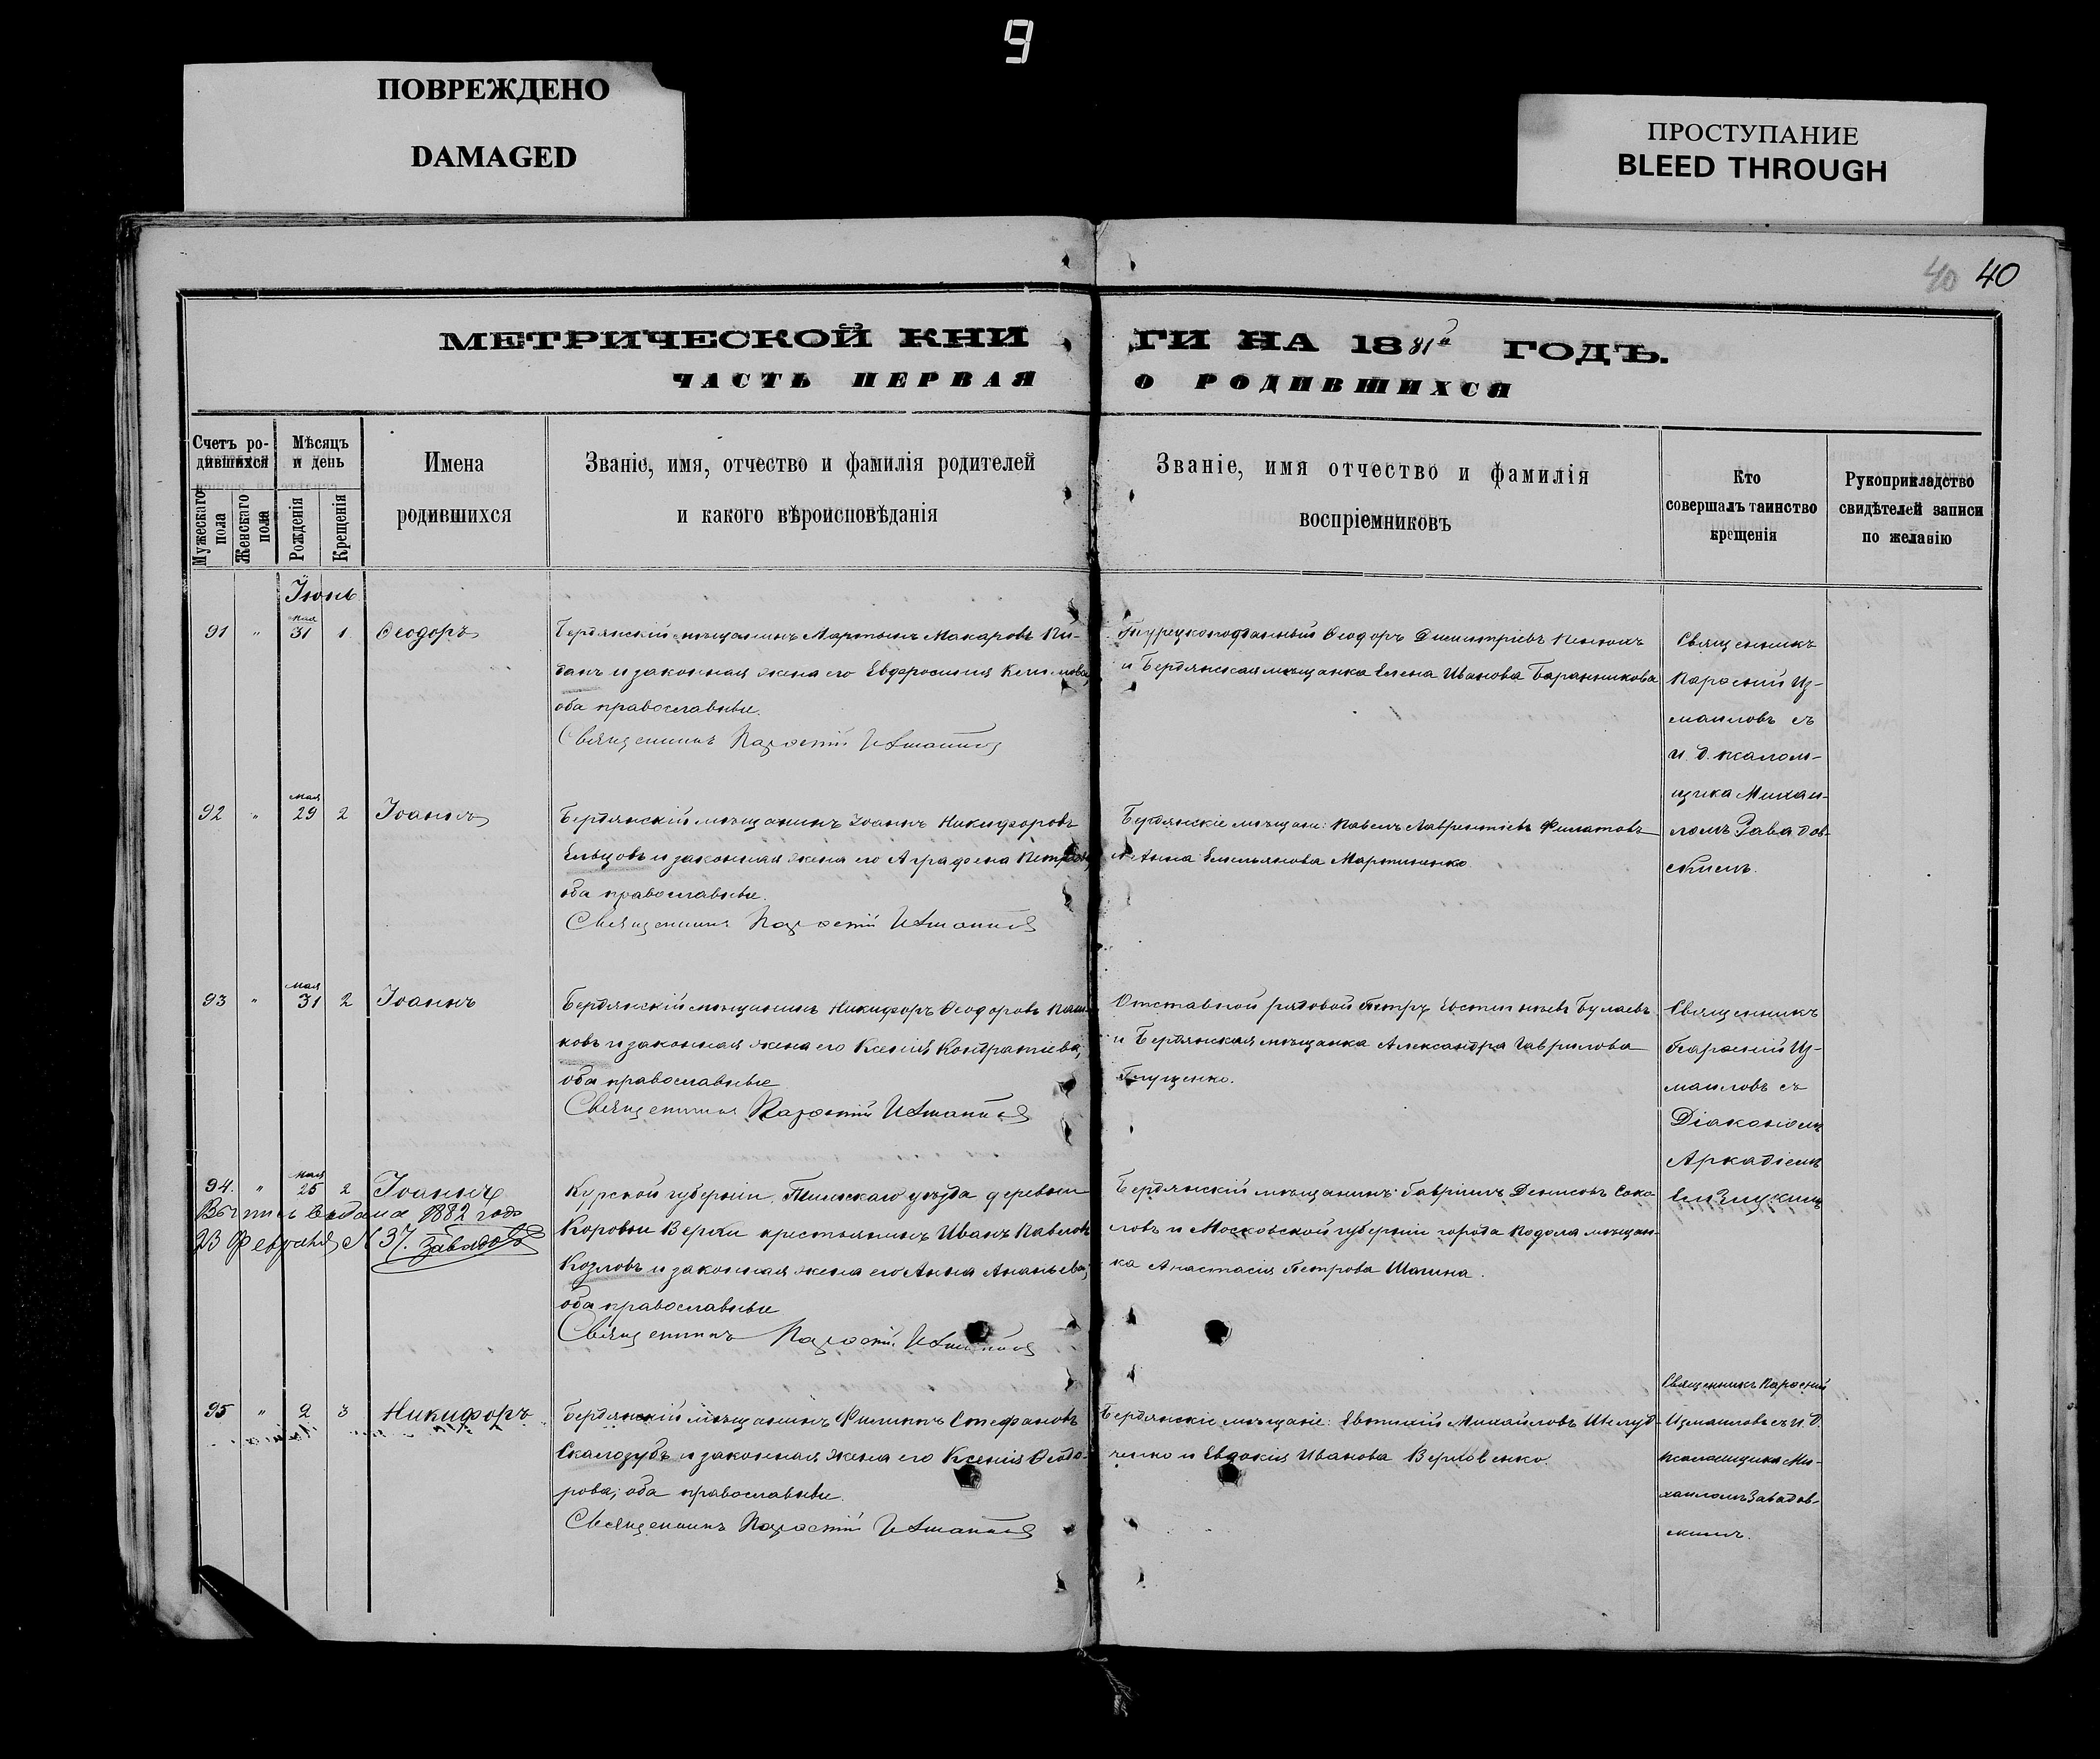 9
ПОВРЕЖДЕНО
DAMAGED
ПРОСТУПАНИЕ
BLEED THROUGH
40 40
МЕТРИЧЕСКОЙ КНИГИ НА 1881й ГОДЪ.
ЧАСТЬ ПЕРВАЯ О РОДИВШИХСЯ
Счетъ ро-
дившихся
Мужескаго пола
Женскаго пола
Мѣсяцъ
и день
Рожденія
Крещенія
Имена
родившихся
Званіе, имя, отчество и фамилія родителей
и какого вѣроисповѣданія
Званіе, имя отчество и фамилія
воспріемниковъ
Кто
совершалъ таинство
крещенія
Рукоприкладство
свидѣтелей записи
по желанію
Іюнь
91 " мая 31 1. Ѳеодоръ
Бердянскій мѣщанинъ Мартынъ Макаровъ
и законная жена его Евфросинія
оба православные.
Священникъ Измаиловъ
Турецкоподданный Ѳеодоръ Димитріевъ
и Бердянская мѣщанка Елена Иванова Баранникова
Священникъ
Из-
маиловъ съ
и. д. псалом-
щика Михаи-
ломъ Завадов-
скимъ.
92 " мая 29 2 Іоаннъ
Бердянскій мѣщанинъ Іоаннъ Никифоровъ
Ельцовъ и законная жена его Аграфена
оба православные.
Священникъ Измаиловъ
Бердянскіе мѣщане: Павелъ Лаврентіевъ Филатовъ
и Анна Емельянова Мартиненко
93 " мая 31 2 Іоаннъ
Бердянскій мѣщанинъ Никифоръ Ѳеодоровъ
ковъ и законная жена его Ксенія Кондратіева,
оба православные
Священникъ Измаиловъ
Отставной рядовой Петръ Булаевъ
и Бердянская мѣщанка Александра Гаврилова
Глущенко.
Священникъ
Из-
маиловъ съ
Діакономъ
Аркадіемъ
94. " мая 25 2 Іоаннъ
Выпись выдана 1882 года
23 Февраля № 37.
Курской губерніи, Тимскаго уѣзда деревни
Коровьи Верхи крестьянинъ Иванъ Павловъ
Козловъ и законная жена его Анна Ананьева,
оба православные
Священникъ Измаиловъ
Бердянскій мѣщанинъ Гавріилъ Денисовъ Соко-
ловъ и Московской губерніи города Подола мѣщан-
ка Анастасія Петрова Шагина.
95 " 2 3 Никифоръ
Бердянскій мѣщанинъ Филиппъ Стефановъ
Скалозубъ и законная жена его Ксенія Ѳеодо-
рова; оба православные.
Священникъ Измаиловъ
Бердянскіе мѣщане: Евтихій Михайловъ Шелуд-
ченко и Евдокія Иванова
Священникъ
Измаиловъ съ и. д.
псаломщика Ми-
хаиломъ Завадов-
скимъ.